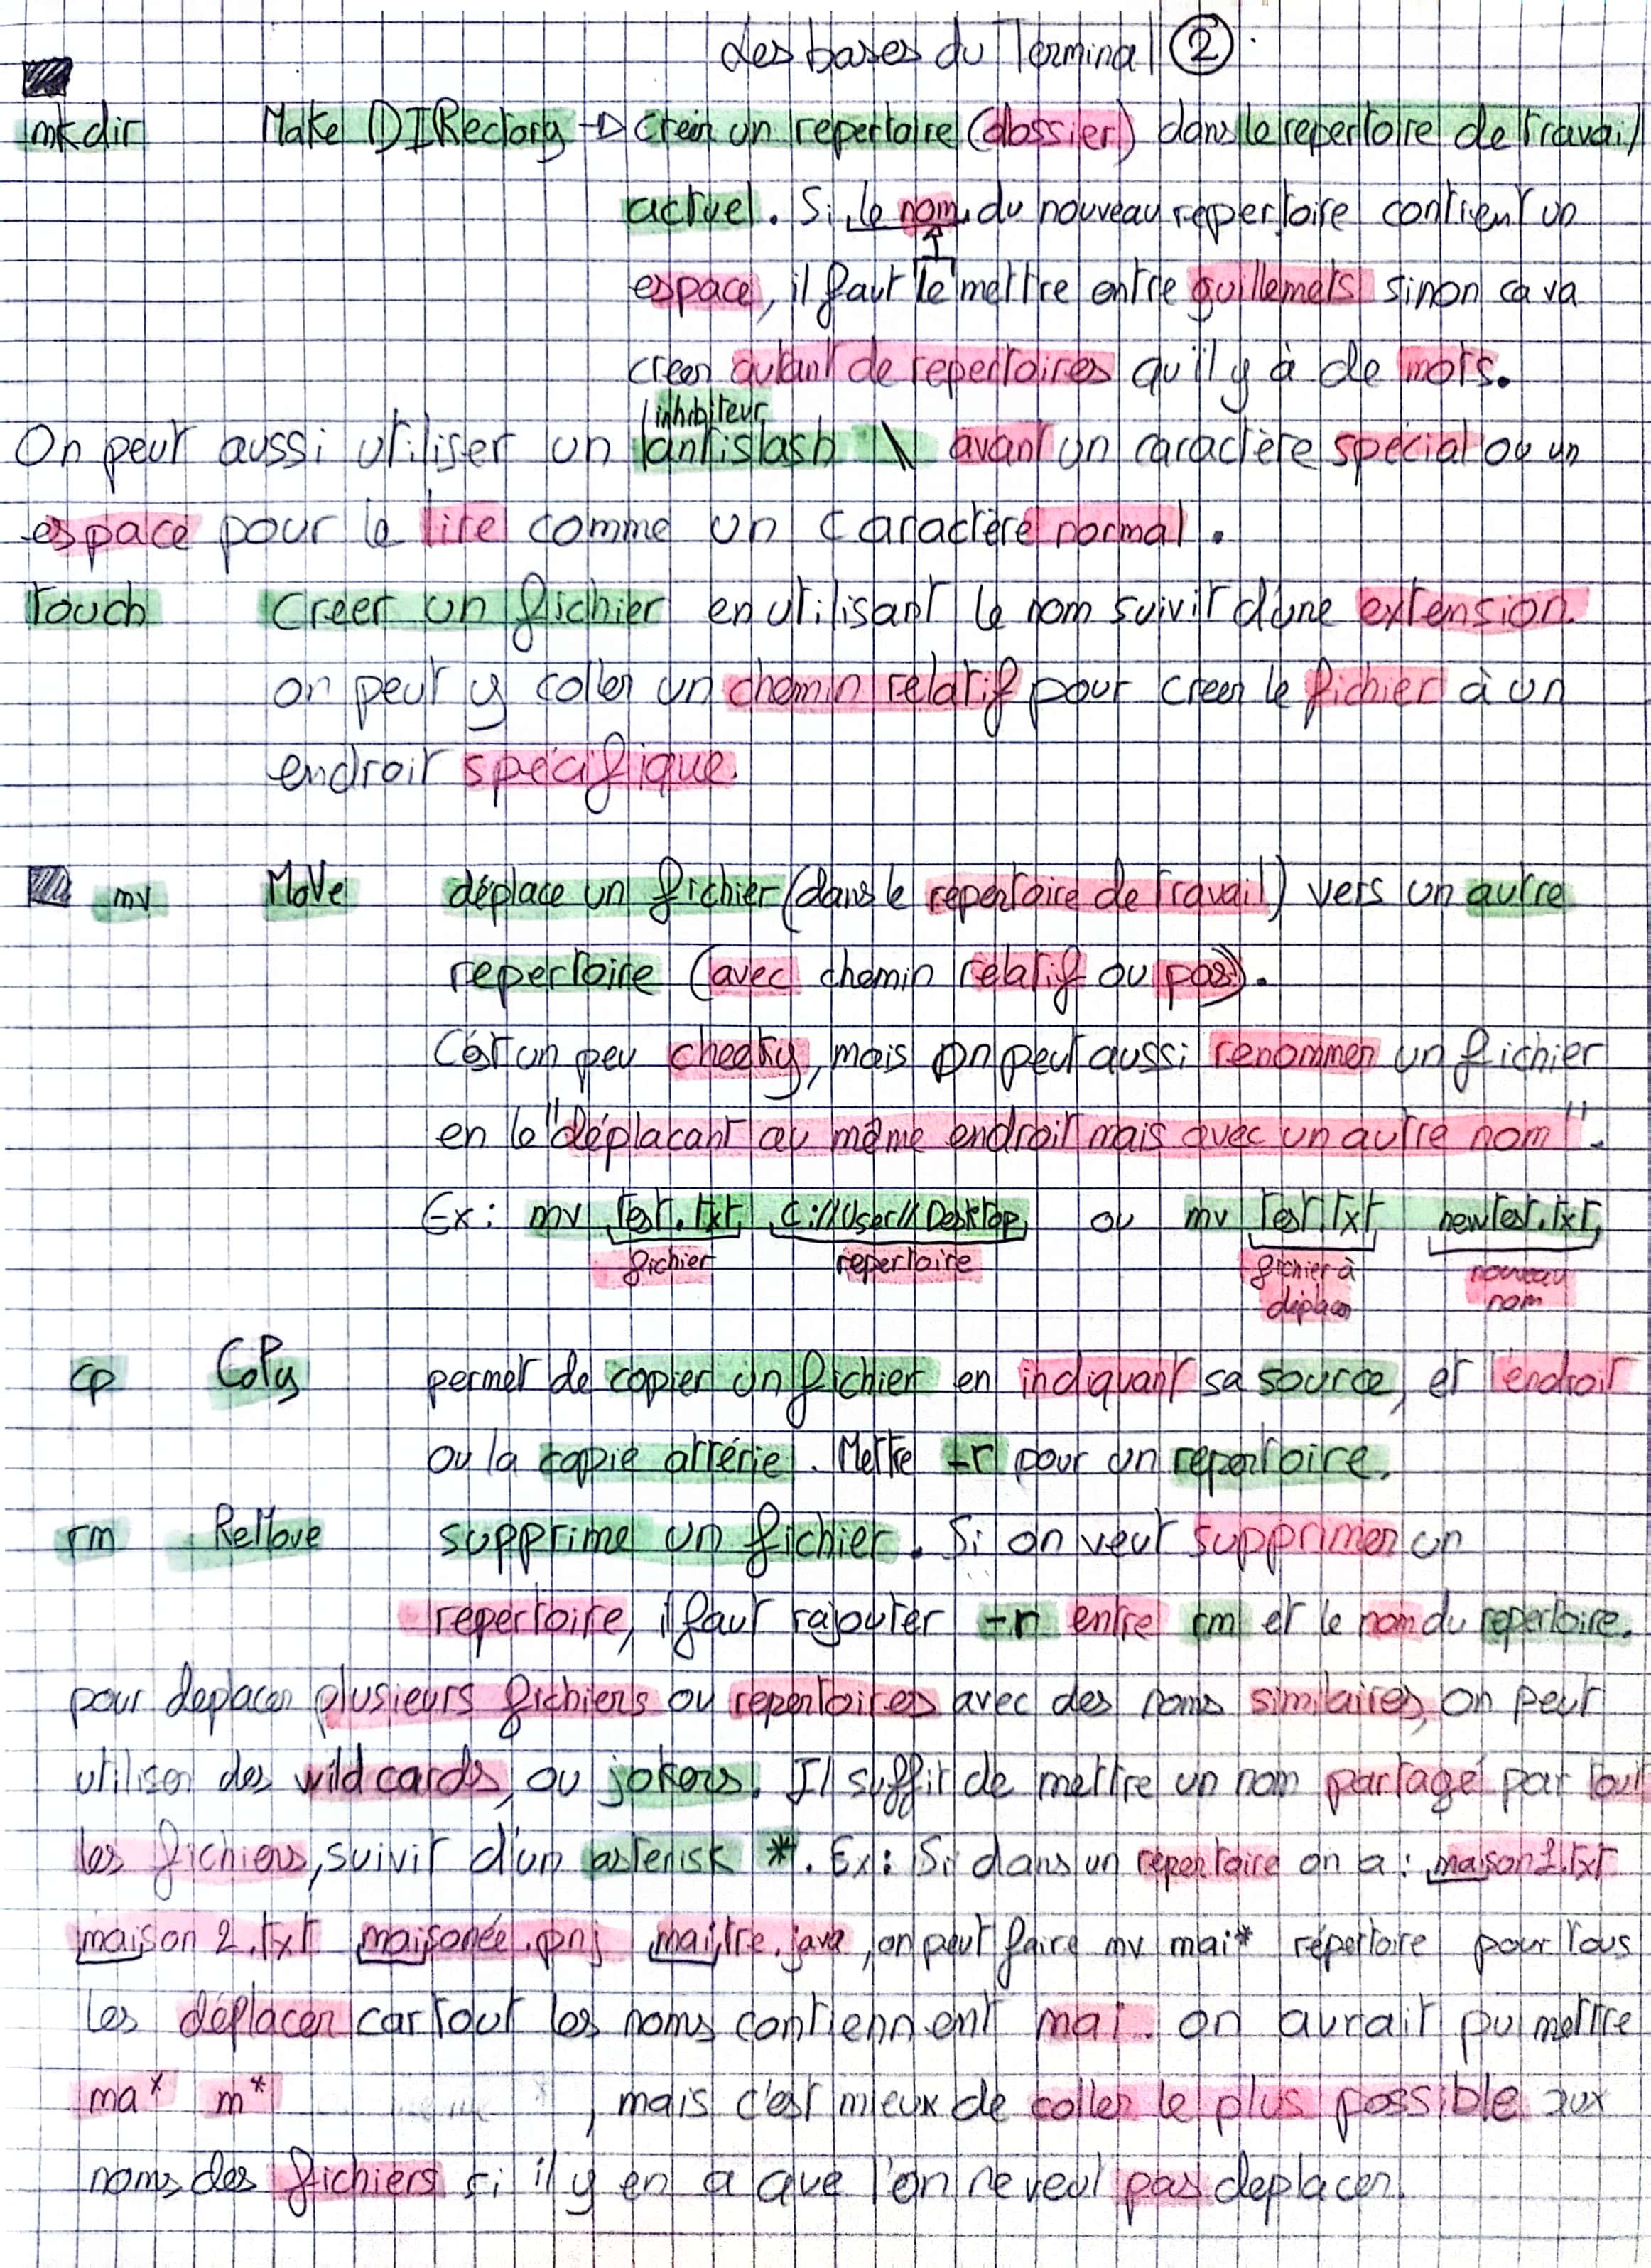 Les bases du Terminal 2
mkdir Make DIRectory → Creer un repertoire (dossier) dans le repertoire de travail
actuel. Si le nom du nouveau repertoire contient un
espace, il faut le mettre entre guillemets sinon ca va
creer autant de repertoires qu'il y à de mots.
inhibiteur
On peut aussi utiliser un antislash \ avant un caractère spécial ou un
espace pour le lire comme un caractère normal.
touch Creer un fichier en utilisant le nom suivit d'une extension.
on peut y coller un chemin relatif pour creer le fichier à un
endroit spécifique.
mv MoVe déplace un fichier (dans le repertoire de travail) vers un autre
repertoire (avec chemin relatif ou pas).
C'est un peu cheeky, mais on peut aussi renommer un fichier
en le "déplacant au même endroit mais avec un autre nom".
Ex: mv test.txt C://User//Desktop ou mv test.txt newtest.txt
fichier repertoire fichier à nouveau
déplacer nom
cp CoPy permet de copier un fichier en indiquant sa source, et l'endroit
ou la copie attérie. Mettre -r pour un repertoire.
rm ReMove supprime un fichier. Si on veut supprimer un
repertoire, il faut rajouter -r entre rm et le nom du repertoire.
pour deplacer plusieurs fichiers ou repertoires avec des noms similaires, on peut
utiliser des wild cards, ou jokers. Il suffit de mettre un nom partagé par tout
les fichiers, suivit d'un asterisk *. Ex: Si dans un repertoire on a: maison1.txt
maison 2.txt maisonée.pnj maitre.java, on peut faire mv mai* répertoire pour tous
les déplacer car tout les noms contiennent mai. on aurait pu mettre
ma* m* , mais c'est mieux de coller le plus possible aux
noms des fichiers si il y en a que l'on ne veut pas deplacer.